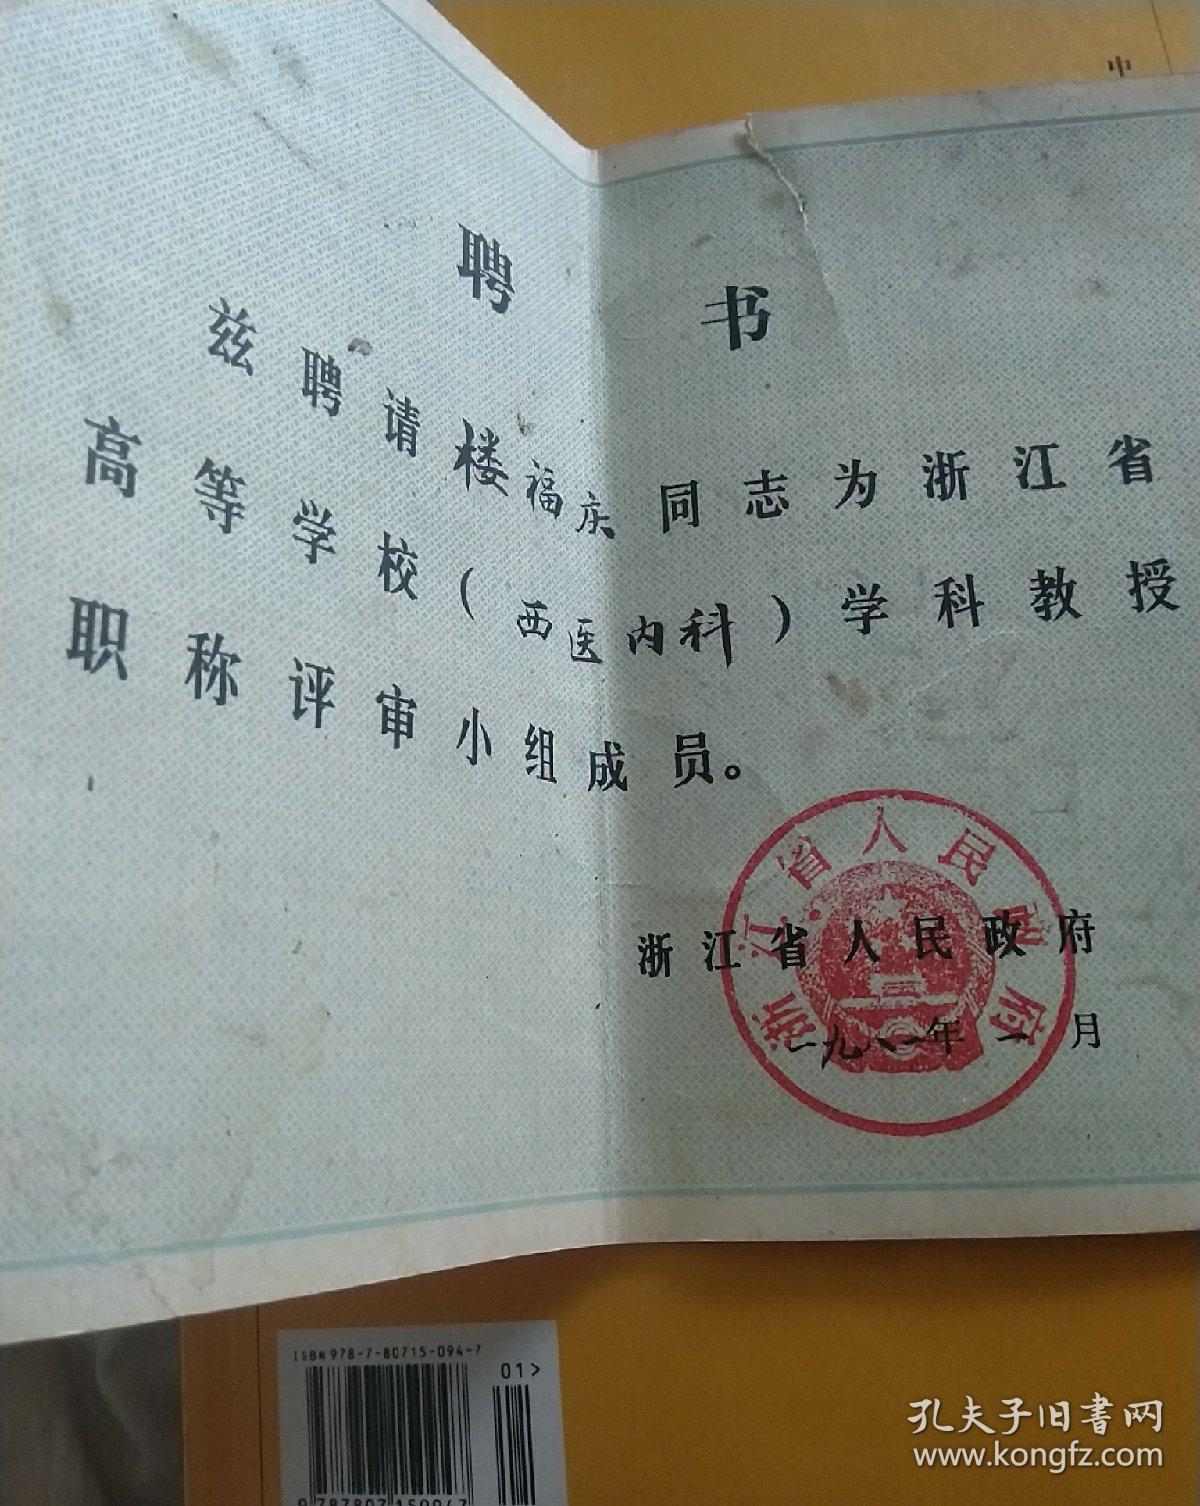 中
聘书
兹聘请楼福庆同志为浙江省
高等学校(西医内科)学科教授
职称评审小组成员。
浙江省人民政府
浙江省人民政府
一九八一年一月
ISBN 978-7-80715-094-7
01>
9 787807 150947
孔夫子旧書网
www.kongfz.com